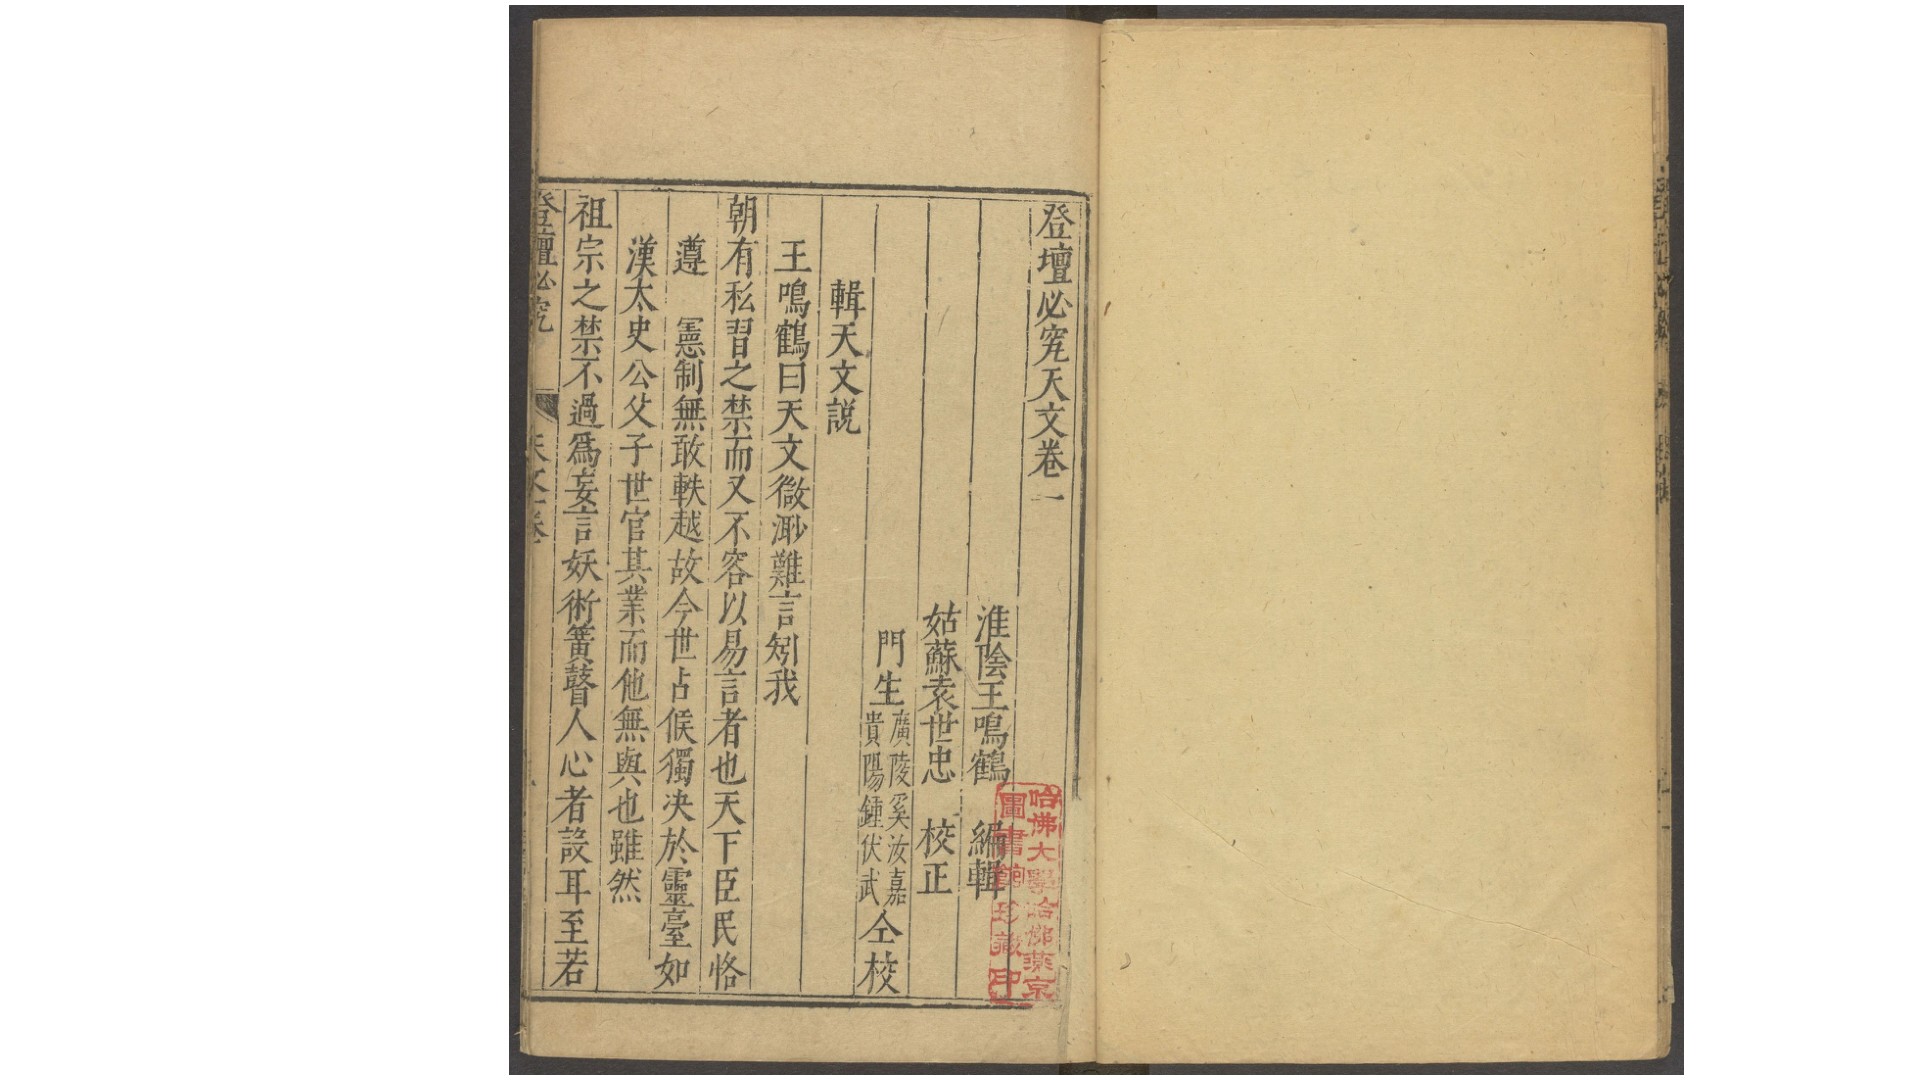 登壇必究天文卷一
淮陰王鳴鶴 編輯
姑蘇袁世忠 校正
門生廣陵奚汝嘉貴陽鍾伏武仝校
輯天文說
王鳴鶴曰天文微渺難言矧我
朝有私習之禁而又不容以易言者也天下臣民恪
遵 憲制無敢軼越故今世占候獨决於靈臺如
漢太史公父子世官其業而他無與也雖然
祖宗之禁不過爲妄言妖術簧鼓人心者設耳至若
登壇必究 天文一卷
哈佛大學哈佛燕京
圖書館珍藏印